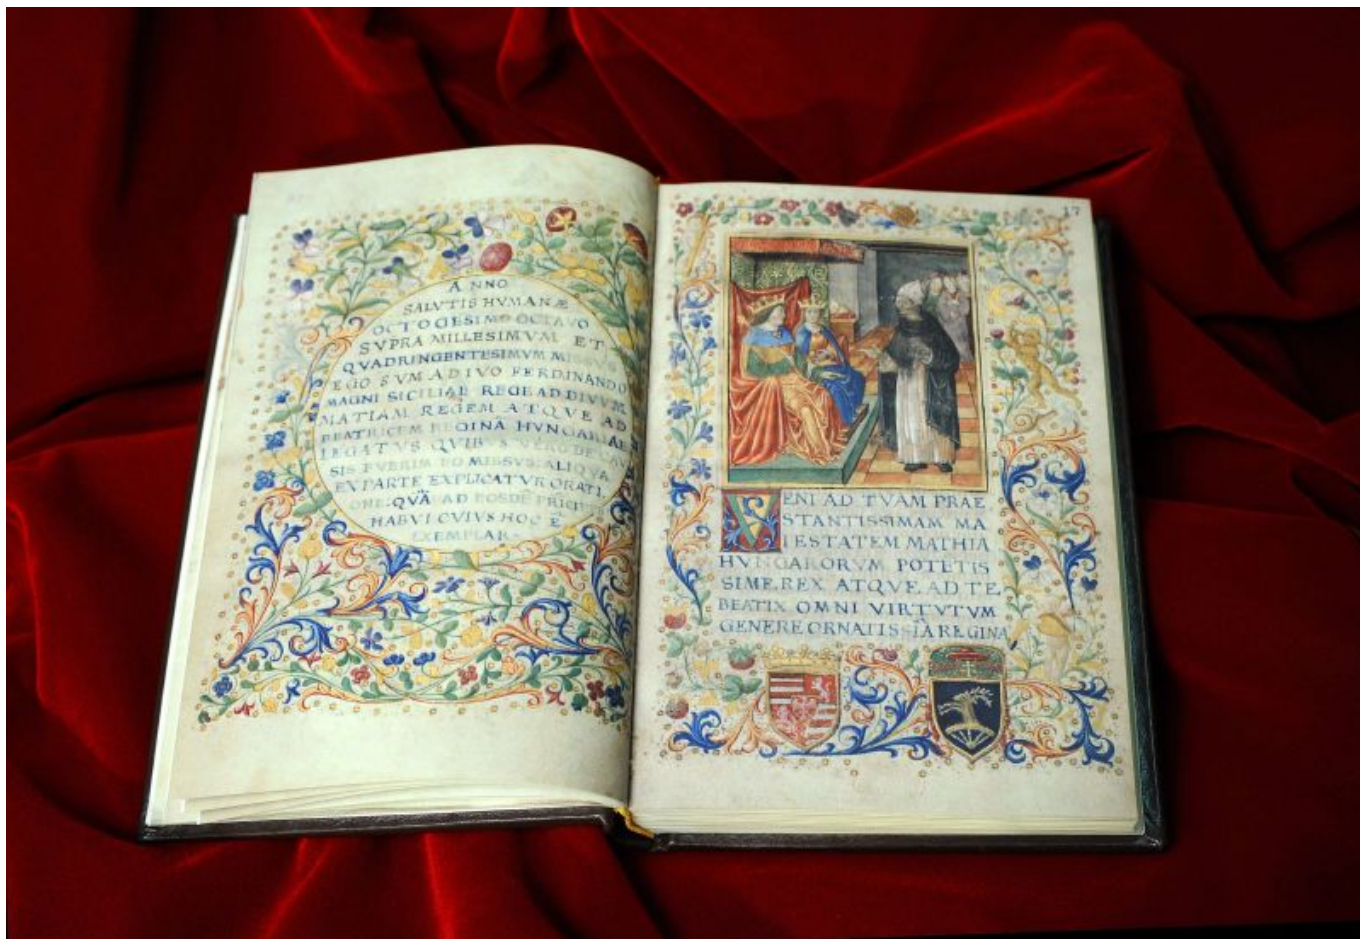 ANNO
SALVTIS HVMANÆ
OCTOGESIMO OCTAVO
SVPRA MILLESIMVM ET
QVADRINGENTESIMVM MISSVS
EGO SVM AD IVO FERDINANDO
MAGNI SICILIAE REGE AD DIVVM
MATIAM REGEM ATQVE AD
BEATRICEM REGINÃ HVNGARIAE
LEGATVS QVIBVS VERO DE CAV
SIS FVERIM EO MISSVS ALIQVA
EX PARTE EXPLICATVR ORATI
ONE QVÃ AD EOSDẼ
HABVI CVIVS HOC E
EXEMPLAR
17
VENI AD TVAM PRAE
STANTISSIMAM MA
IESTATEM MATHIA
HVNGARORVM POTETIS
SIME REX ATQVE AD TE
BEATIX OMNI VIRTVTVM
GENERE ORNATISSIÃ REGINA